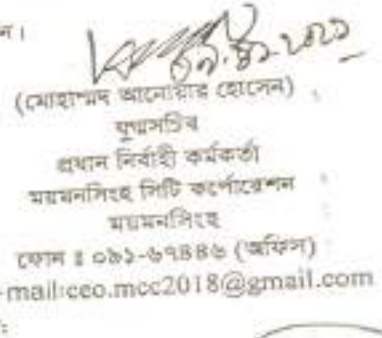 ন।
০৭.৪১.২০২১
(মোহাম্মদ আনোয়ার হোসেন)
যুগ্মসচিব
প্রধান নির্বাহী কর্মকর্তা
ময়মনসিংহ সিটি কর্পোরেশন
ময়মনসিংহ
ফোন ঃ ০৯১-৬৭৪৪৬ (অফিস)
-mail:ceo.mcc2018@gmail.com